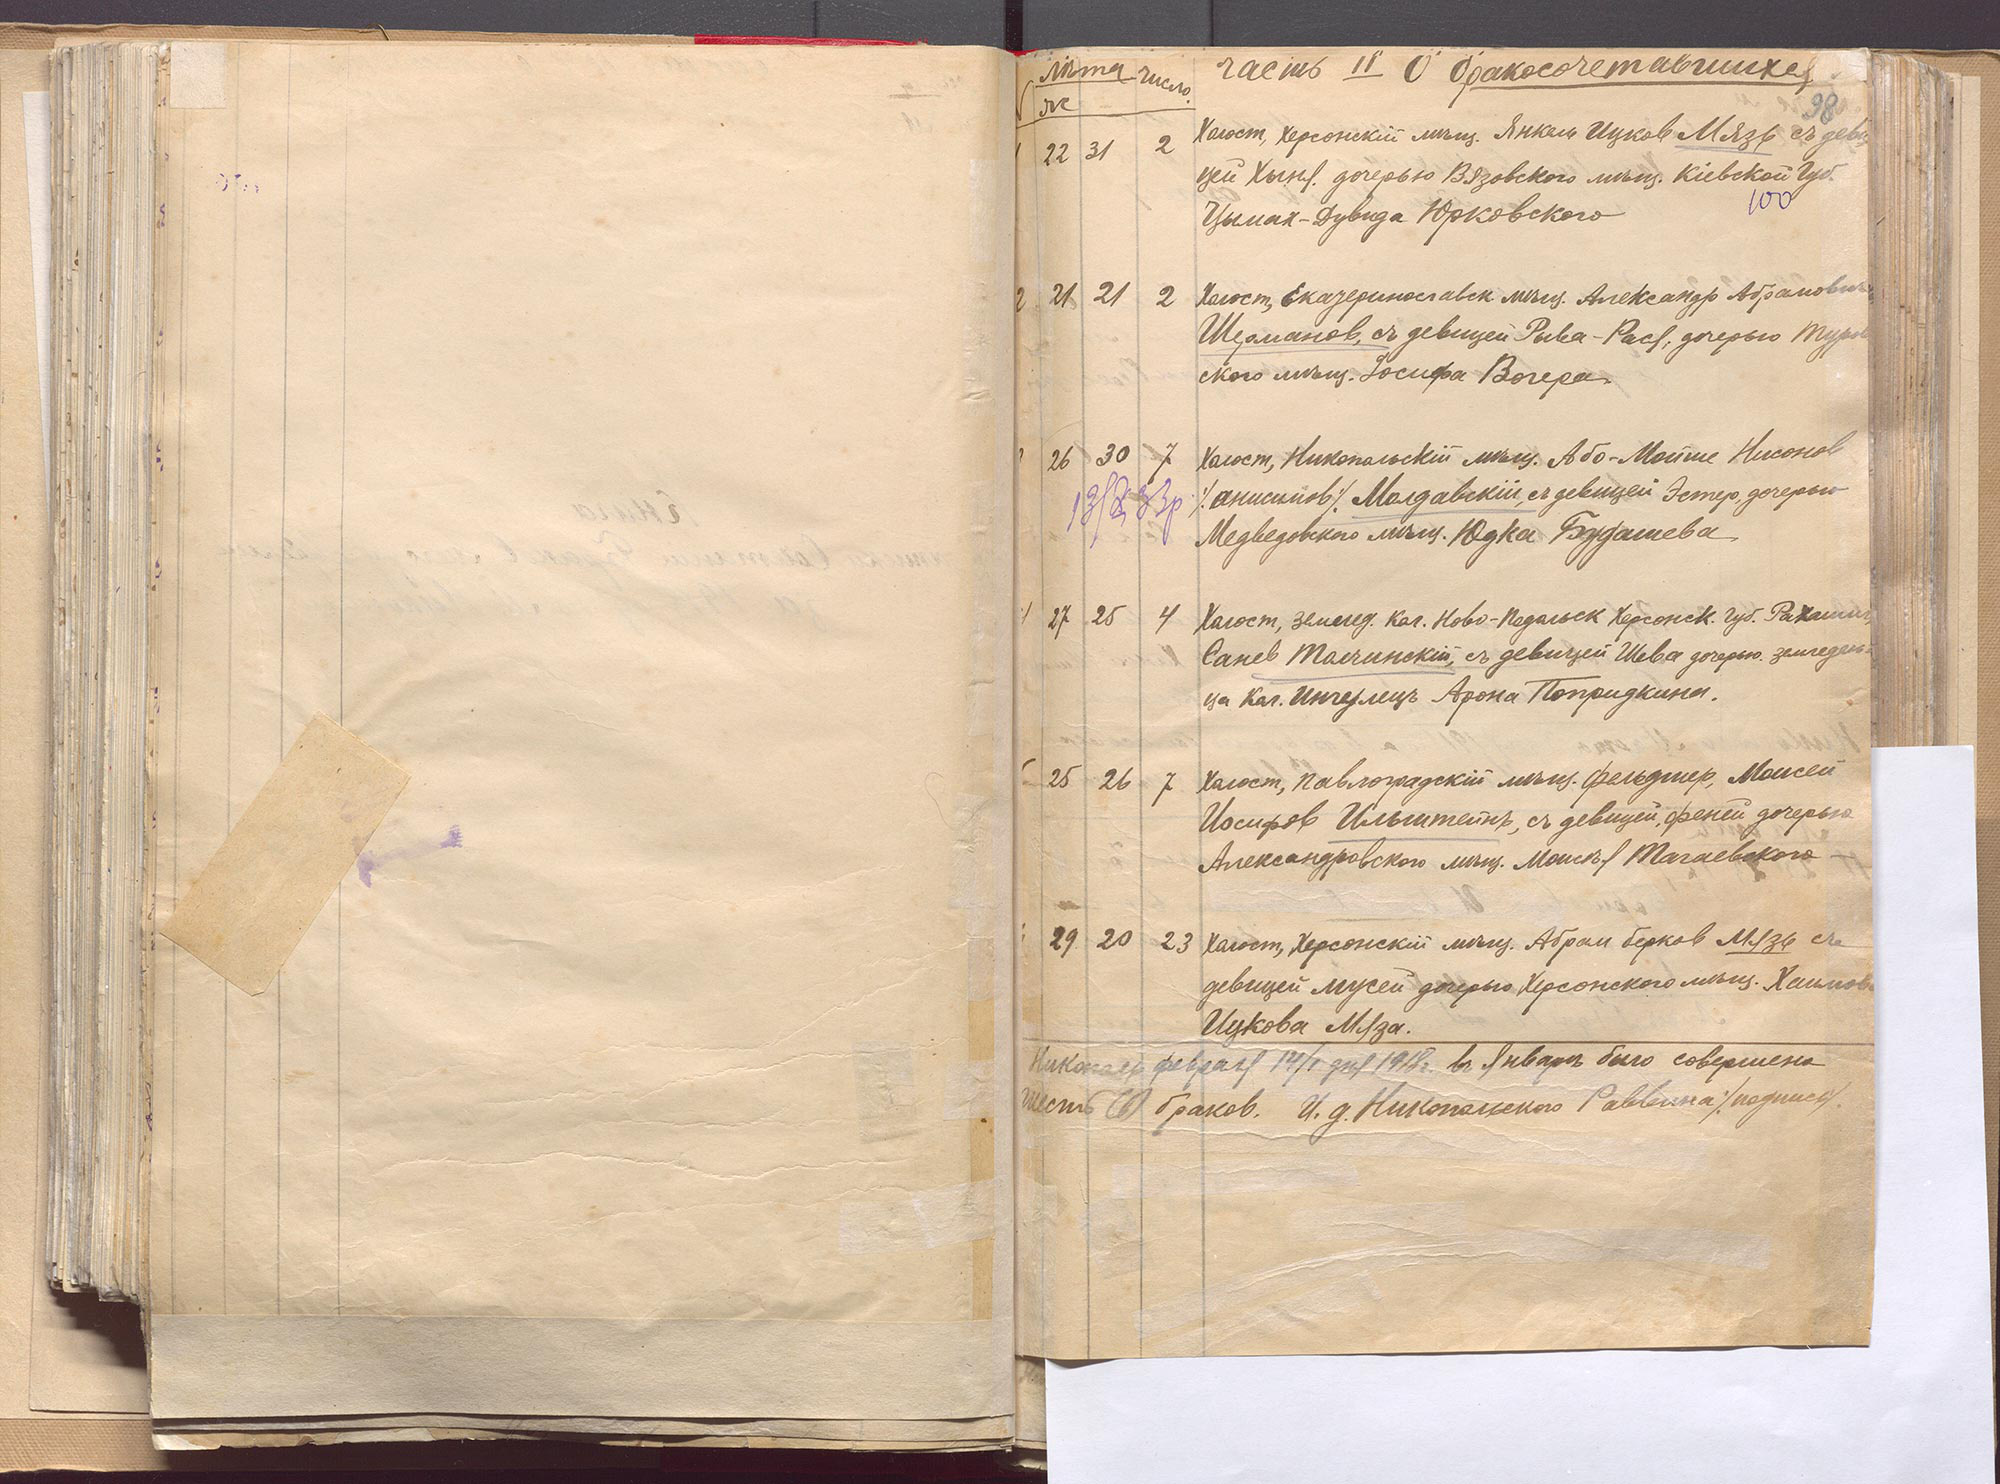 Лѣта Число. Часть II О бракосочетавшихся
ж
98
22 31 2 Холост, Херсонскій мѣщ. Янкель Ицков Мязь съ деви
цей Хыня, дочерью Вязовского мѣщ. Кіевской Губ.
100
Цымах-Дувида Юрковского
2 21 21 2 Холост, Екатеринославск мѣщ. Александр Абрамович
Шерманов, съ девицей Рыва-Рася, дочерью Туров
ского мѣщ. Іосифа Вочера
26 30 7 Холост, Никопольскій мѣщ. Або-Мойше Нисонов
/:Анисимов:/ Молдавскій, съ девицей Эстер, дочерью
Медведовского мѣщ. Юдка Бурдашева
27 25 4 Холост, землед. кол. Ново-Подольск Херсонск. Губ. Рахмиил
Санев Толчинскій, съ девицей Шева дочерью земледель-
ца кол. Ингулецъ Арона Попридкина.
25 26 7 Холост, Павлоградскій мѣщ. фельдшер, Моисей
Иосифов Ильштейнъ, съ девицей, Феней дочерью
Александровского мѣщ. Моисея Тагаевского
29 20 23 Холост, Херсонскій мѣщ. Абрам Берков Мязь съ
девицей Мусей дочерью Херсонского мѣщ. Хаимова
Ицкова Мяза.
Никополь февраля 14/1 дня 1918г. въ Январѣ было совершена
шесть (6) браков. И. д. Никопольского Раввина /:подпись:/.